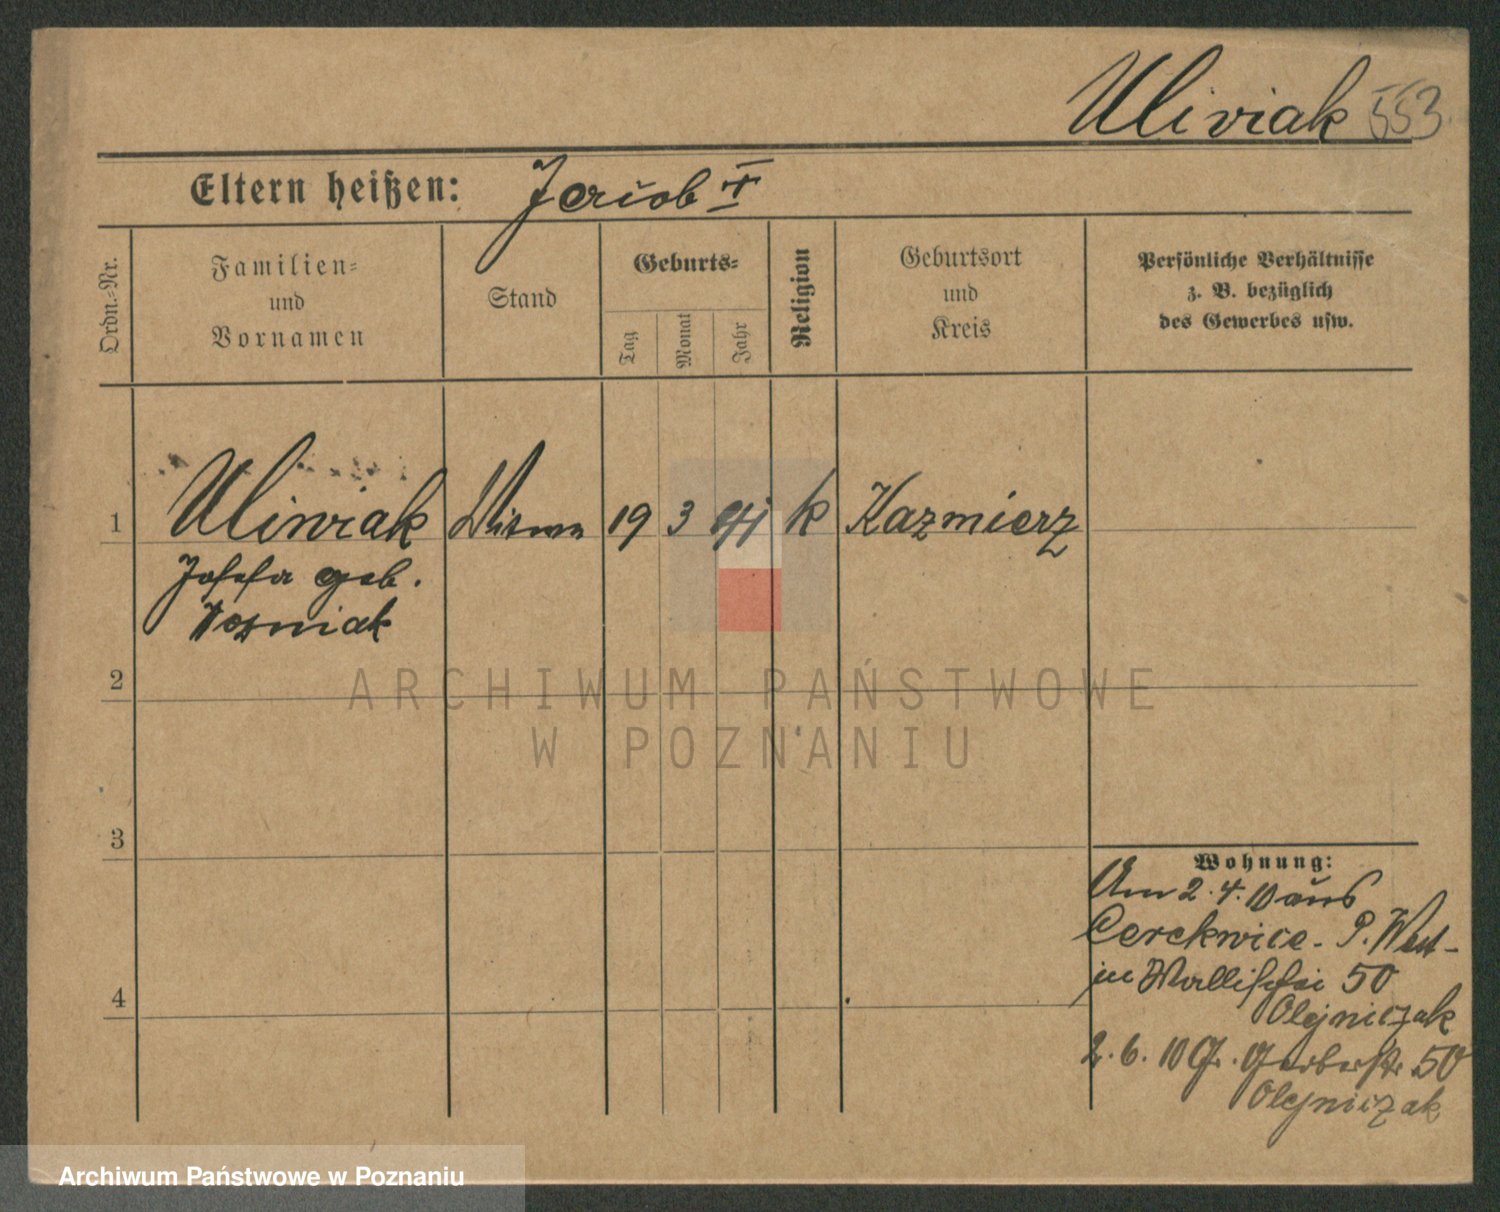 Uliviak 553
Eltern heißen: Jacob †
Ordn.-Nr.
Familien-
und
Vornamen
Stand
Geburts-
Tag
Monat
Jahr
Religion
Geburtsort
und
Kreis
Persönliche Verhältnisse
z. B. bezüglich
des Gewerbes usw.
1 Uliwiak 19 3 k Kazmierz
Josefa geb.
Wozniak
2
3
4
Wohnung:
Am 2.4.10 aus
Cerekwice - P. West-
in Wallischei 50
Olejniczak
2.6.10 Gr. Gerberstr 50
Olejniczak
ARCHIWUM PAŃSTWOWE
W POZNANIU
Archiwum Państwowe w Poznaniu